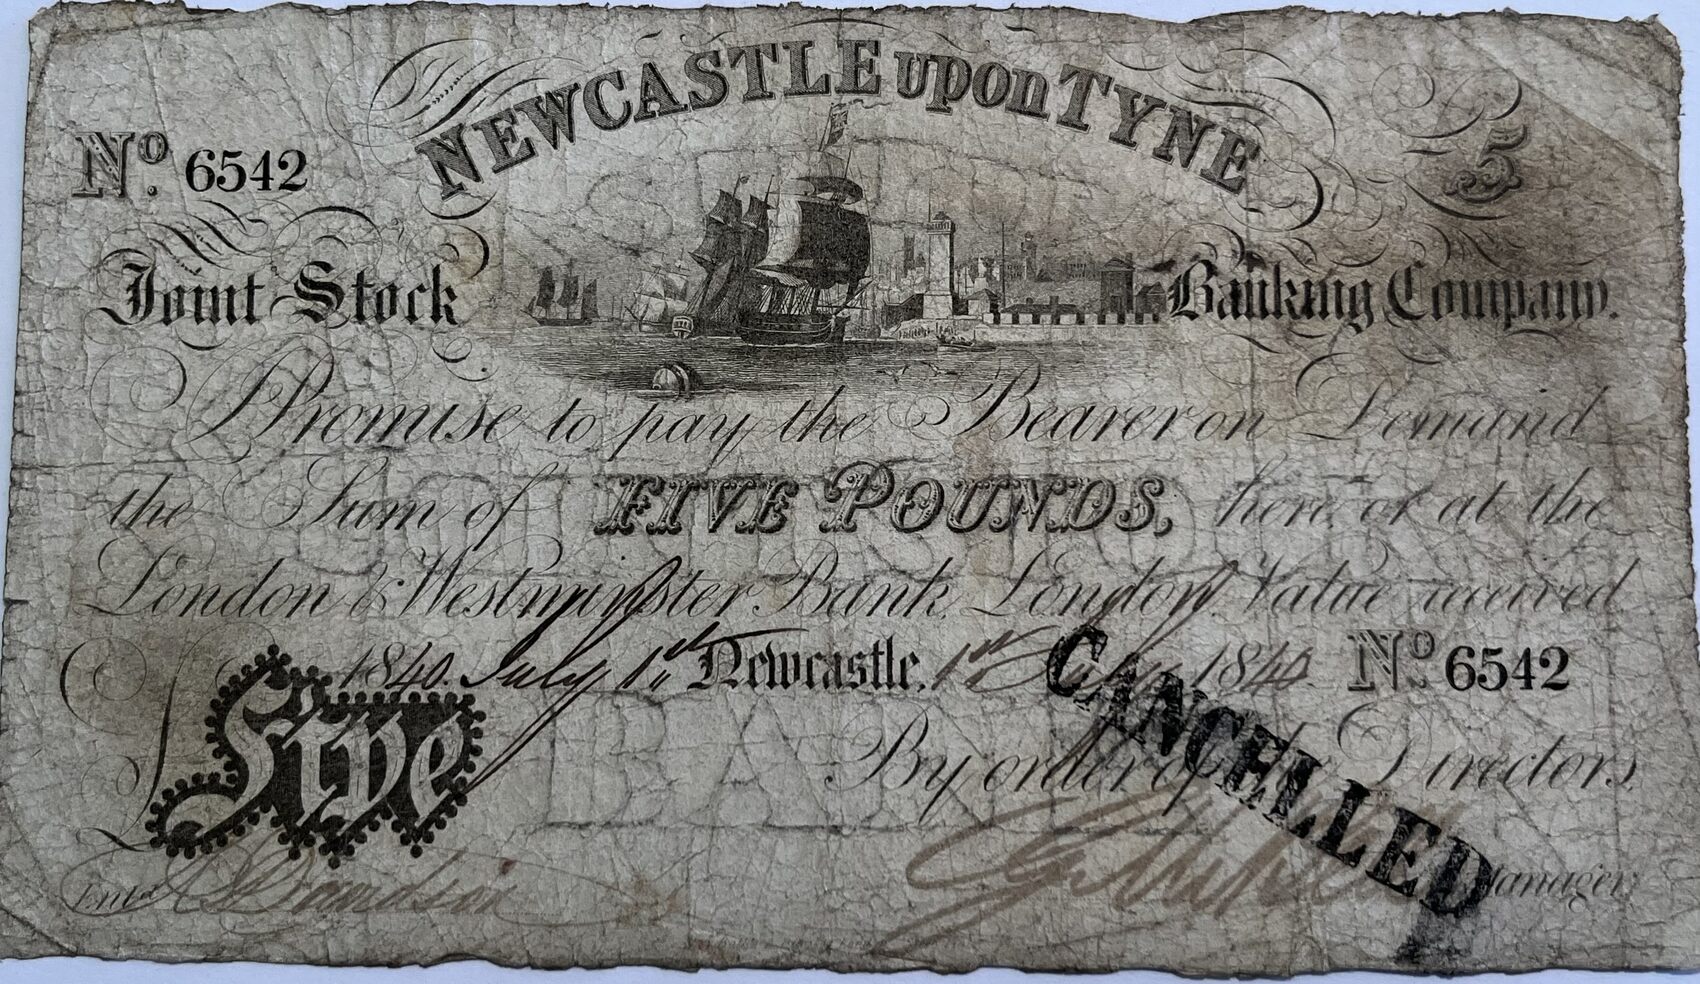 NEWCASTLE upon TYNE
5
No. 6542
Joint Stock Banking Company.
Promise to pay the Bearer on Demand
the Sum of FIVE POUNDS, here or at the
London & Westminster Bank, London. Value received
1840. July 1st Newcastle. 1st July 1840. No 6542
By order of Directors
Five
CANCELLED
Entd Manager